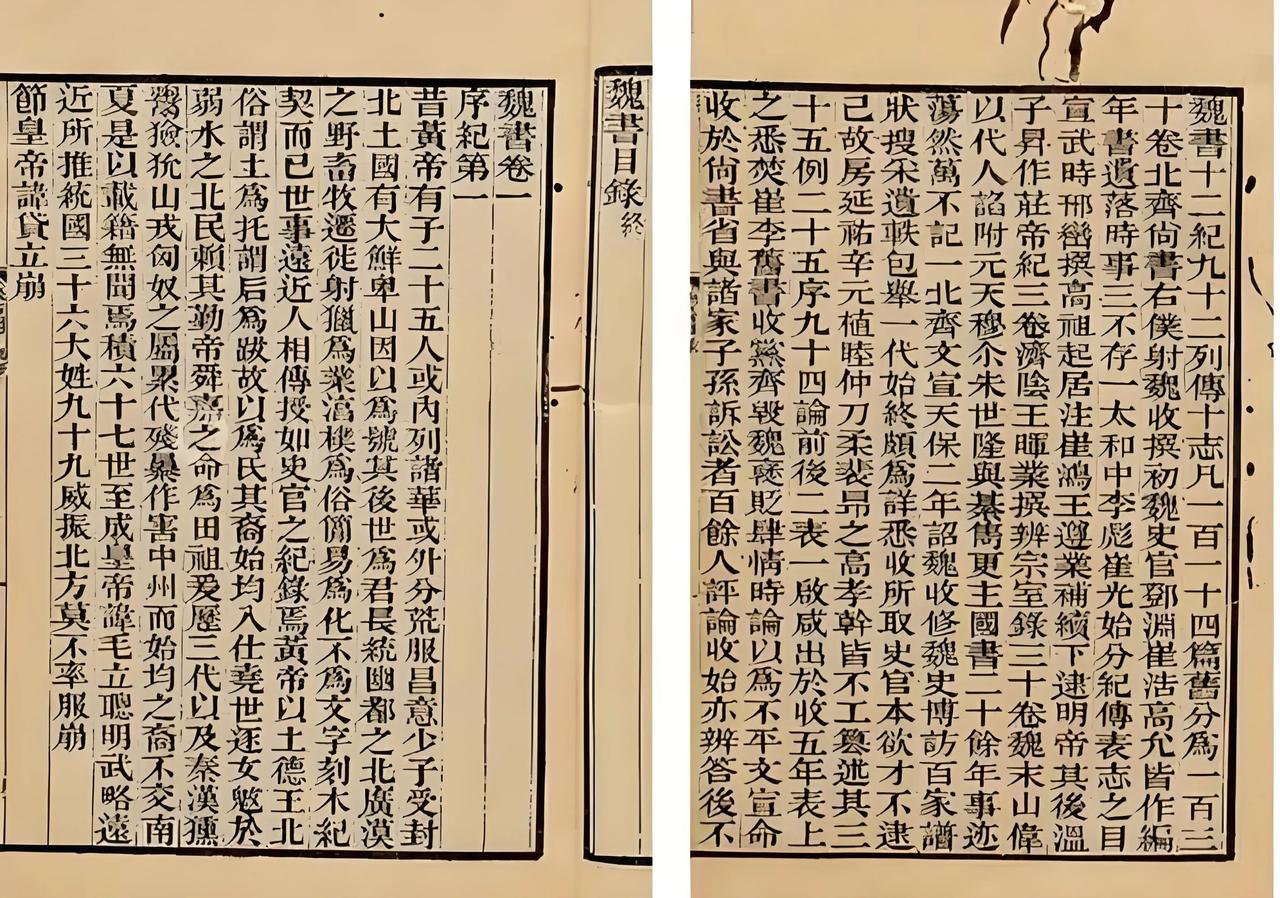 魏書十二紀九十二列傳十志凡一百一十四篇舊分爲一百三
十卷北齊尚書右僕射魏收撰初魏史官鄧淵崔浩高允皆作編
年書遺落時事三不存一太和中李彪崔光始分紀傳表志之目
宣武時邢巒撰高祖起居注崔鴻王遵業補續下逮明帝其後溫
子昇作莊帝紀三卷濟陰王暉業撰辨宗室錄三十卷魏末山偉
以代人諂附元天穆尒朱世隆與綦儁更主國書二十餘年事迹
蕩然萬不記一北齊文宣天保二年詔魏收修魏史博訪百家譜
狀搜采遺軼包舉一代始終頗爲詳悉收所取史官本欲才不逮
己故房延祐辛元植睦仲刀柔裴昂之高孝幹皆不工纂述其三
十五例二十五序九十四論前後二表一啟咸出於收五年表上
之悉焚崔李舊書收黨齊毀魏褒貶肆情時論以爲不平文宣命
收於尚書省與諸家子孫訴訟者百餘人評論收始亦辨答後不
魏書目錄終
魏書卷一
序紀第一
昔黃帝有子二十五人或內列諸華或外分荒服昌意少子受封
北土國有大鮮卑山因以爲號其後世爲君長統幽都之北廣漠
之野畜牧遷徙射獵爲業淳樸爲俗簡易爲化不爲文字刻木紀
契而已世事遠近人相傳授如史官之紀錄焉黃帝以土德王北
俗謂土爲托謂后爲跋故以爲氏其裔始均入仕堯世逐女魃於
弱水之北民賴其勤帝舜嘉之命爲田祖爰歷三代以及秦漢獯
鬻獫狁山戎匈奴之屬累代殘暴作害中州而始均之裔不交南
夏是以載籍無聞焉積六十七世至成皇帝諱毛立聰明武略遠
近所推統國三十六大姓九十九威振北方莫不率服崩
節皇帝諱貸立崩